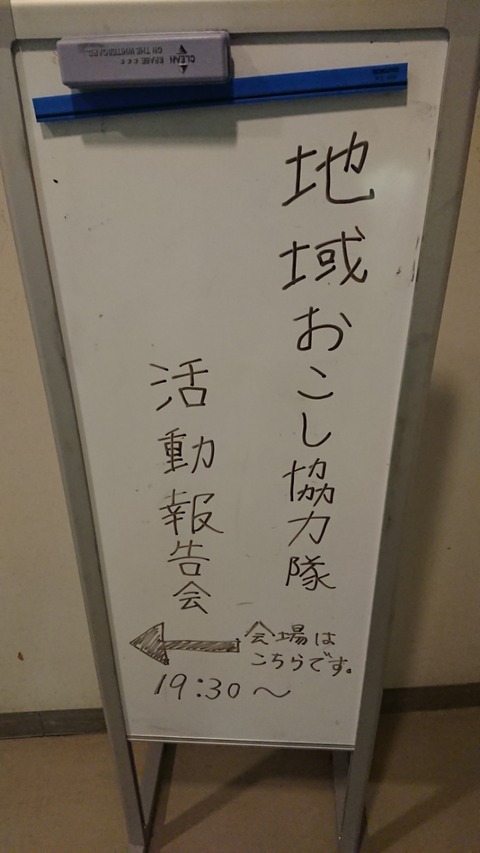 CLEAN ERASE
ON THE WHITEBOARD
地域おこし協力隊
活動報告会
会場は
こちらです。
19:30～